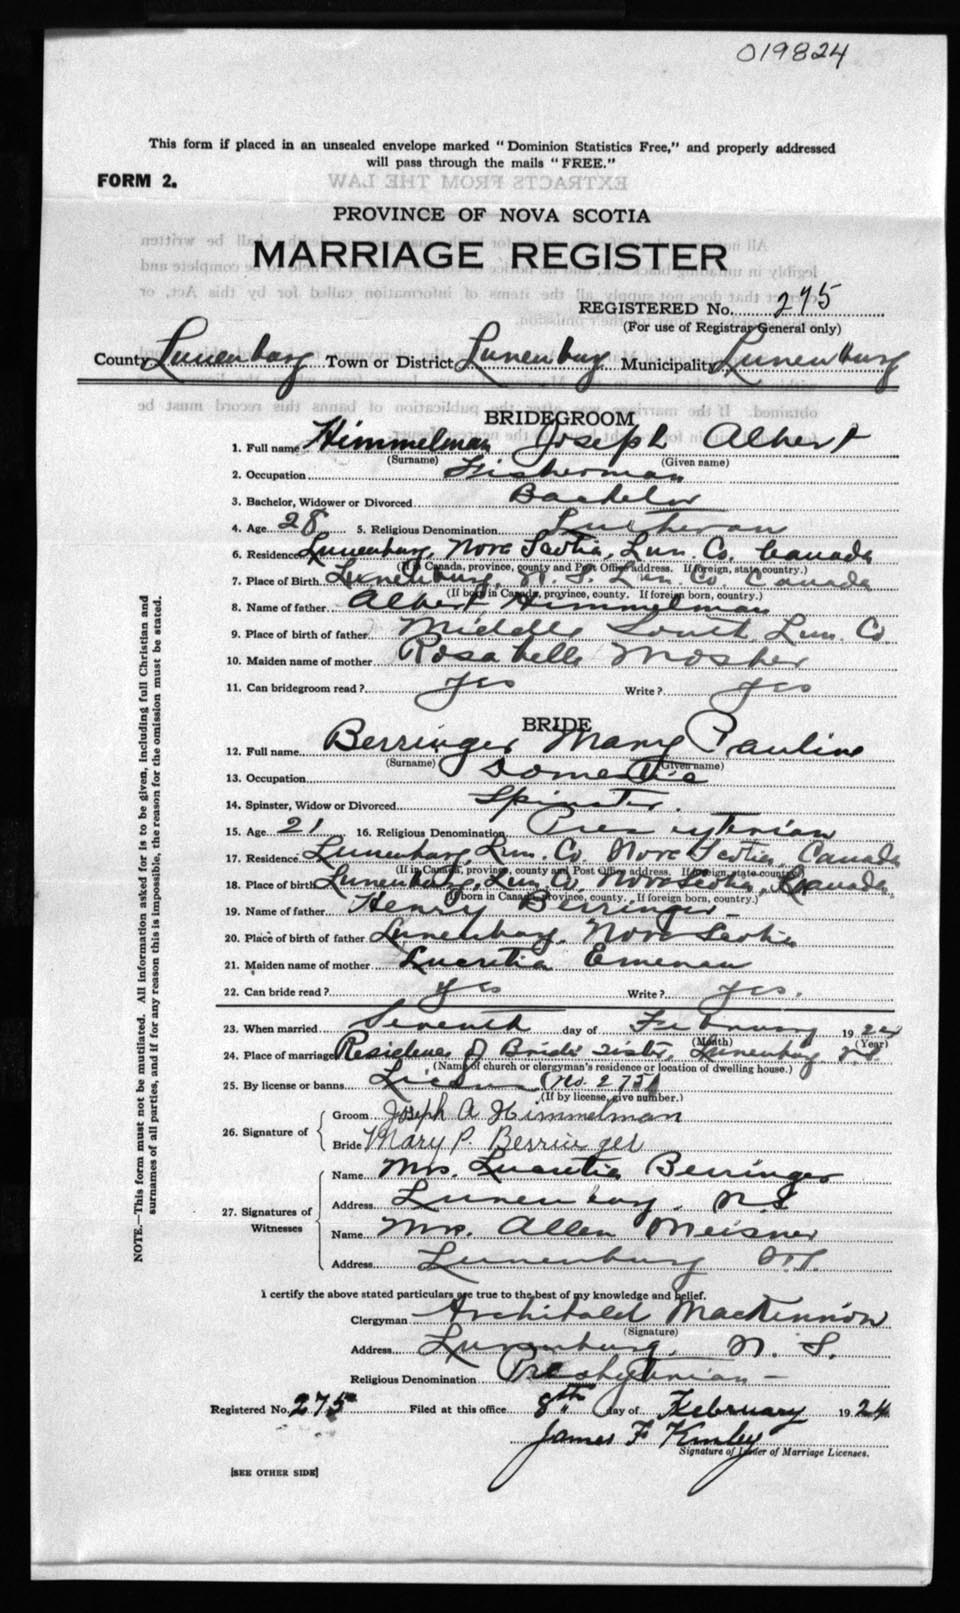 019824
This form if placed in an unsealed envelope marked "Dominion Statistics Free," and properly addressed
will pass through the mails "FREE."
FORM 2.
EXTRACTS FROM THE LAW
PROVINCE OF NOVA SCOTIA
MARRIAGE REGISTER
REGISTERED No. 275
(For use of Registrar General only)
County Lunenburg Town or District Lunenburg Municipality Lunenburg
BRIDEGROOM
1. Full name Himmelman Joseph Albert
(Surname) (Given name)
2. Occupation Fisherman
3. Bachelor, Widower or Divorced Bachelor
4. Age 28 5. Religious Denomination Lutheran
6. Residence Lunenburg, Nova Scotia, Lun. Co. Canada
(If in Canada, province, county and Post Office address. If foreign, state country.)
7. Place of Birth Lunenburg, N. S. Lun. Co. Canada
(If born in Canada, province, county. If foreign born, country.)
8. Name of father Albert Himmelman
9. Place of birth of father Middle South, Lun. Co.
10. Maiden name of mother Rosabelle Mosher
11. Can bridegroom read? yes Write? yes
BRIDE
12. Full name Berringer Mary Pauline
(Surname) (Given name)
13. Occupation Domestic
14. Spinster, Widow or Divorced Spinster.
15. Age 21 16. Religious Denomination Presbyterian
17. Residence Lunenburg, Lun. Co. Nova Scotia, Canada
(If in Canada, province, county and Post Office address. If foreign, state country)
18. Place of birth Lunenburg, Lun Co. Nova Scotia, Canada,
(If born in Canada, province, county. If foreign born, country.)
19. Name of father Henry Berringer
20. Place of birth of father Lunenburg, Nova Scotia
21. Maiden name of mother Lucretia Emeneau
22. Can bride read? yes Write? yes.
23. When married Seventh day of February 1924
(Month) (Year)
24. Place of marriage Residence of Bride's sister, Lunenburg N.S.
(Name of church or clergyman's residence or location of dwelling house.)
25. By license or banns License (No. 275)
(If by license, give number.)
26. Signature of
Groom Joseph A Himmelman
Bride Mary P. Berringer
27. Signatures of Witnesses
Name Mrs. Lucretia Berringer
Address Lunenburg, N.S.
Name Mrs. Allen Meisner
Address Lunenburg N.S.
I certify the above stated particulars are true to the best of my knowledge and belief.
Clergyman Archibald MacKinnon
(Signature)
Address Lunenburg, N. S.
Religious Denomination Presbyterian -
Registered No. 275 Filed at this office 8th day of February 1924
James F Kinley
Signature of Issuer of Marriage Licenses.
[SEE OTHER SIDE]
NOTE.—This form must not be mutilated. All information asked for is to be given, including full Christian and
surnames of all parties, and if for any reason this is impossible, the reason for the omission must be stated.